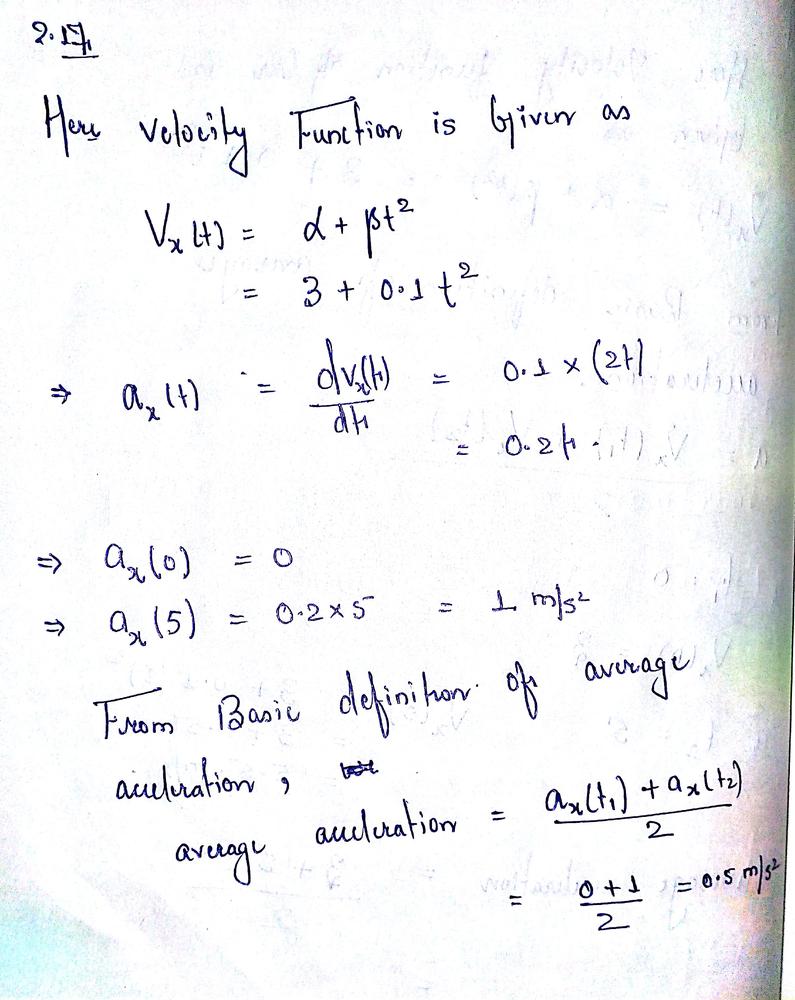 2.17
Here velocity Function is Given as
Vx(t) = α + βt²
= 3 + 0.1 t²
⇒ ax(t) = dvx(t)/dt = 0.1 × (2t)
= 0.2t.
⇒ ax(0) = 0
⇒ ax(5) = 0.2×5 = 1 m/s²
From Basic definition of average
acceleration,
average acceleration = (ax(t₁) + ax(t₂))/2
= (0+1)/2 = 0.5 m/s²